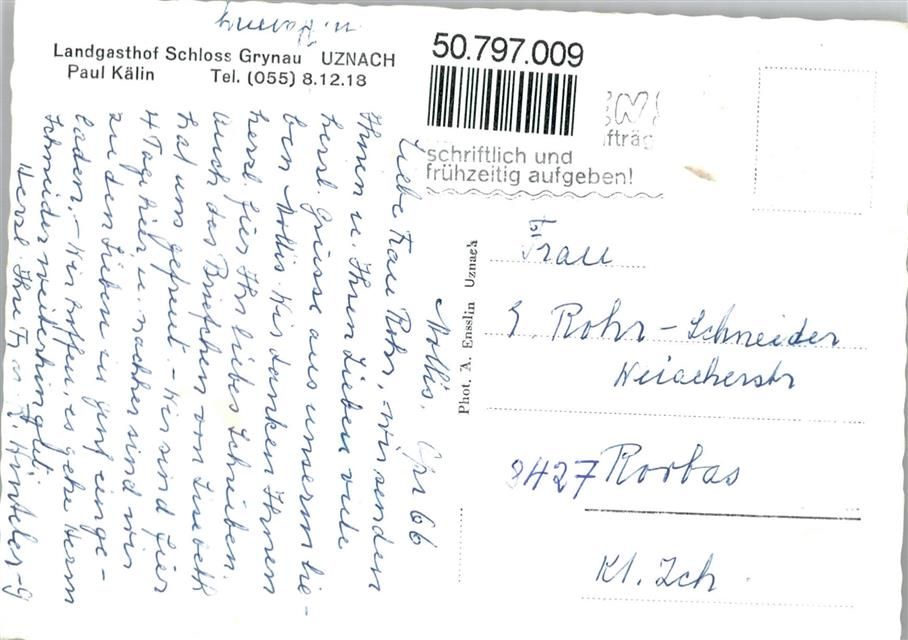 Landgasthof Schloss Grynau UZNACH
Paul Kälin Tel. (055) 8.12.18
50.797.009
schriftlich und
frühzeitig aufgeben!
Phot. A. Ensslin Uznach
Frau
E. Rohr-Schneider
Weiacherstr
8427 Rorbas
Kt. Zch.
Mollis. Apr 66
Liebe Frau Rohr, - wir senden
Ihnen u. Ihren Lieben viele
herzl. Grüsse aus unserm lie-
ben Mollis. Wir danken Ihnen
herzl. für Ihr liebes Schreiben.
Auch das Briefchen von
hat uns gefreut. - Wir sind für
4 Tage hier u. nachher sind wir
zu den Lieben in Genf einge-
laden. - Wir hoffen, es gehe Herrn
Schneider weiterhin gut.
Herzl. Ihre
u.